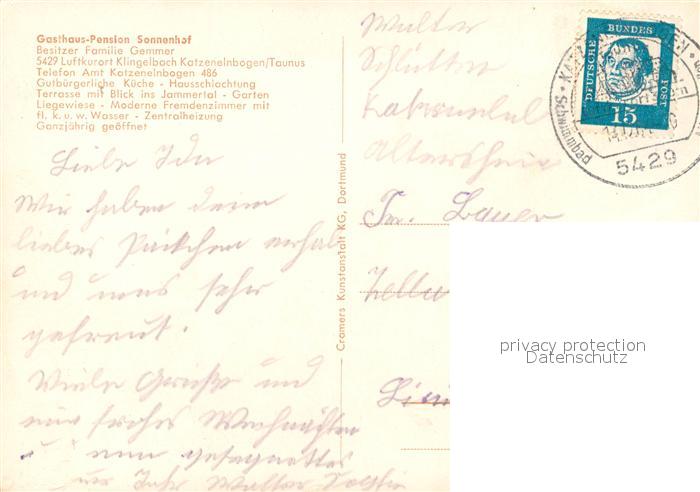 Gasthaus-Pension Sonnenhof
Besitzer Familie Gemmer
5429 Luftkurort Klingelbach Katzenelnbogen/Taunus
Telefon Amt Katzenelnbogen 486
Gutbürgerliche Küche - Hausschlachtung
Terrasse mit Blick ins Jammertal - Garten
Liegewiese - Moderne Fremdenzimmer mit
fl. k. u. w. Wasser - Zentralheizung
Ganzjährig geöffnet
Liebe Ida
Wir haben dein
liebes Päckchen erhal
und uns sehr
gefreut.
Viele Grüße und
ein frohes Weihnachten
u ein gesegnettes
Jahr Walter
Cramers Kunstanstalt KG, Dortmund
Walter
Schlütter
Altersheim
DEUTSCHE BUNDES POST
15
Schwimmbad
5429
privacy protection
Datenschutz